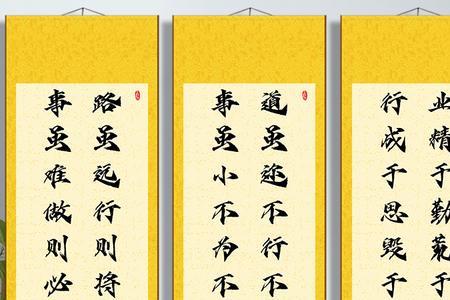 路虽远行则将
事虽难做则必
道虽迩不行不
事虽小不为不
业精于勤荒于
行成于思毁于